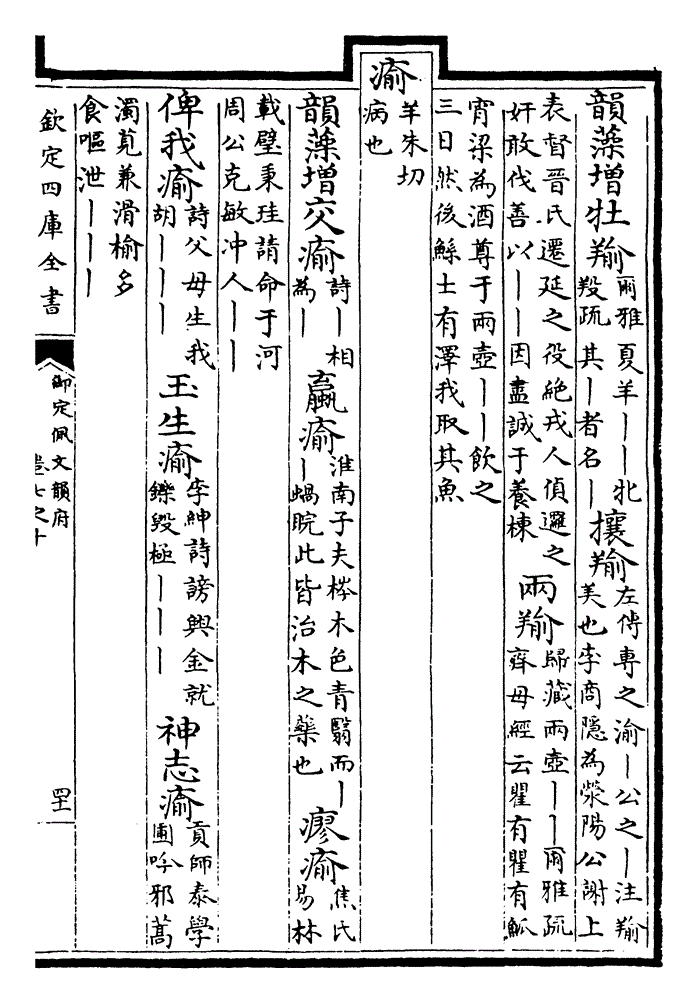 韻藻增牡羭
爾雅夏羊丨丨牝
羖疏其丨者名丨
攘羭
左傳專之渝丨公之丨注羭
美也李商隱為滎陽公謝上
表督晋氏遷延之役絶戎人偵邏之
奸敢伐善以丨丨因盡誠于養棟
兩羭
歸藏兩壺丨丨爾雅疏
齊母經云瞿有瞿有觚
宵梁為酒尊于兩壺丨丨飲之
三日然後鮴士有澤我取其魚
瘉
羊朱切
病也
韻藻增交瘉
詩丨相
為丨
蠃瘉
淮南子夫梣木色青翳而丨
丨蝸睆此皆治木之藥也
瘳瘉
焦氏
易林
載璧秉珪請命于河
周公克敏冲人丨丨
俾我瘉
詩父母生我
胡丨丨丨
玉生瘉
李紳詩謗興金就
鑠毀極丨丨丨
神志瘉
貢師泰學
圃吟邪蒿
濁莧兼滑榆多
食嘔泄丨丨丨
欽定四庫全書
御定佩文韻府
卷七之十
四十一